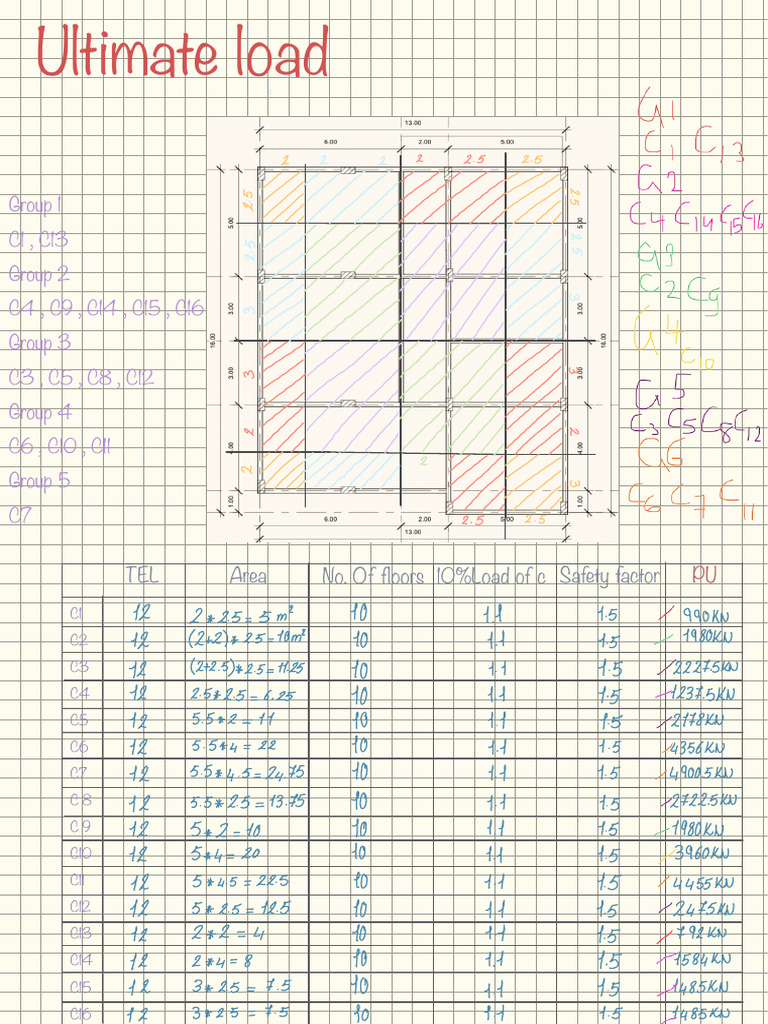 Ultimate load
13.00
6.00 2.00 5.00
2 2 2 2 2.5 2.5
2.5 2.5
5.00 5.00
2.5 2.5
3.00 3 3 3.00
16.00 16.00
3.00 3 3 3.00
4.00 2 2 4.00
2 2 3
1.00 1.00
2.5 2.5
6.00 2.00 5.00
13.00
Group 1
C1, C13
Group 2
C4, C9, C14, C15, C16
Group 3
C3, C5, C8, C12
Group 4
C6, C10, C11
Group 5
C7
G1
C1 C13
G2
C4 C14 C15 C16
G3
C2 C9
G4
C10
G5
C3 C5 C8 C12
G6
C6 C7 C11
TEL Area No. Of floors 10%Load of c Safety factor PU
C1 12 2*2.5=5 m² 10 1.1 1.5 990KN
C2 12 (2+2)*2.5=10m² 10 1.1 1.5 1980KN
C3 12 (2+2.5)*2.5=11.25 10 1.1 1.5 2227.5KN
C4 12 2.5*2.5=6.25 10 1.1 1.5 1237.5KN
C5 12 5.5*2=11 10 1.1 1.5 2178KN
C6 12 5.5*4=22 10 1.1 1.5 4356KN
C7 12 5.5*4.5=24.75 10 1.1 1.5 4900.5KN
C8 12 5.5*2.5=13.75 10 1.1 1.5 2722.5KN
C9 12 5*2=10 10 1.1 1.5 1980KN
C10 12 5*4=20 10 1.1 1.5 3960KN
C11 12 5*4.5=22.5 10 1.1 1.5 4455KN
C12 12 5*2.5=12.5 10 1.1 1.5 2475KN
C13 12 2*2=4 10 1.1 1.5 792KN
C14 12 2*4=8 10 1.1 1.5 1584KN
C15 12 3*2.5=7.5 10 1.1 1.5 1485KN
C16 12 3*2.5=7.5 10 1.1 1.5 1485KN